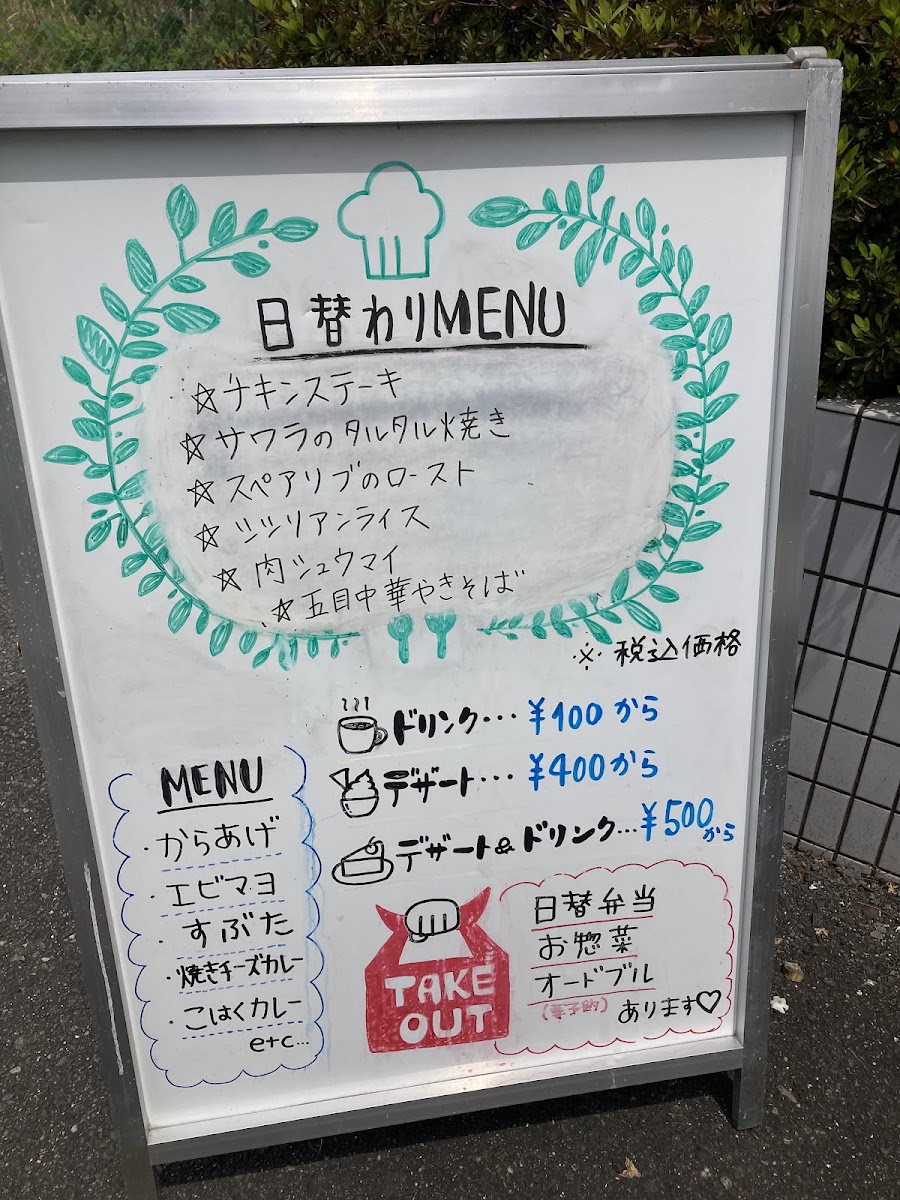 日替わりMENU
☆チキンステーキ
☆サワラのタルタル焼き
☆スペアリブのロースト
☆シシリアンライス
☆肉シュウマイ
☆五目中華やきそば
※税込価格
ドリンク… ¥100から
デザート… ¥400から
デザート&ドリンク… ¥500から
MENU
・からあげ
・エビマヨ
・すぶた
・焼きチーズカレー
・こはくカレー
etc...
TAKE
OUT
日替弁当
お惣菜
オードブル
(要予約) あります♡